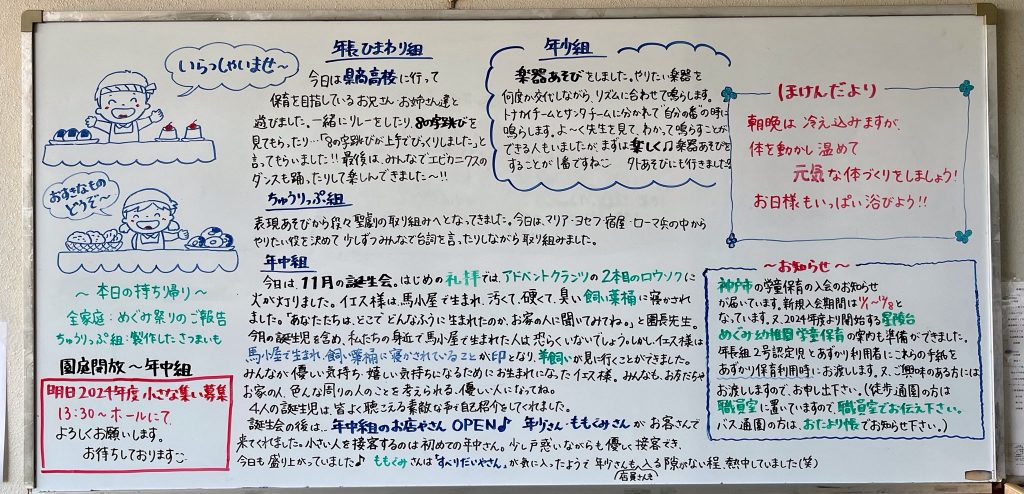 いらっしゃいませ〜
おすきなもの
どうぞ〜
〜本日の持ち帰り〜
全家庭：めぐみ祭りのご報告
ちゅうりっぷ組：製作したさつまいも
園庭開放〜年中組
明日2024年度 小さな集い募集
13:30〜ホールにて
よろしくお願いします。
お待ちしております
年長ひまわり組
今日は県商高校に行って
保育を目指しているお兄さん・お姉さん達と
遊びました。一緒にリレーをしたり、8の字跳びを
見てもらったり…「8の字跳びが上手でびっくりしました。」と
言ってもらいました!!最後は、みんなでエビカニクスの
ダンスも踊ったりして楽しんできました〜!!
年少組
楽器あそびをしました。やりたい楽器を
何度か交代しながら、リズムに合わせて鳴らします。
トナカイチームとサンタチームに分かれて"自分の番"の時に
鳴らします。よ〜く先生を見て、わかって鳴らすことが
できる人もいましたが、まずは楽しく♫楽器あそびを
することが1番ですね 夕外あそびにも行きました!
ちゅうりっぷ組
表現あそびから段々聖劇の取り組みへとなってきました。今日は、マリア・ヨセフ・宿屋・ローマ兵の中から
やりたい役を決めて少しずつみんなで台詞を言ったりしながら取り組みました。
年中組
今日は、11月の誕生会。はじめの礼拝では、アドベントクランツの2本目のロウソクに
火が灯りました。イエス様は馬小屋で生まれ、汚くて、硬くて、臭い飼い葉桶に寝かされ
ました。「あなたたちは、どこでどんなふうに生まれたのか、お家の人に聞いてみてね。」と園長先生。
今月の誕生児を含め、私たちの身近で馬小屋で生まれた人は恐らくいないでしょう。しかし、イエス様は
馬小屋で生まれ、飼い葉桶に寝かされていることが印となり、羊飼いが見に行くことができました。
みんなが優しい気持ち・嬉しい気持ちになるためにお生まれになったイエス様。みんなも、お友だちや
お家の人、色んな周りの人のことを考えられる、優しい人になってね。
4人の誕生児は、皆よく聴こえる素敵な声で自己紹介をしてくれました。
誕生会の後は、年中組のお店やさん OPEN♪ 年少さん・ももぐみさんが お客さんで
来てくれました。小さい人を接客するのは初めての年中さん。少し戸惑いながらも優しく接客でき、
今日も盛り上がっていました♪ ももぐみさんは"すべりだいやさん"が気に入ったようで 年少さんも入る隙がない程、熱中していました(笑)
店員さんも
ほけんだより
朝晩は 冷え込みますが、
体を動かし温めて
元気な体づくりをしましょう!
お日様もいっぱい浴びよう!!
〜お知らせ〜
神戸市の学童保育の入会のお知らせ
が届いています。新規入会期間は
なっています。又、2024年度より開始する星陵台
めぐみ幼稚園学童保育の案内も準備ができました。
年長組2号認定児とあずかり利用者にこれらの手紙を
あずかり保育利用時にお渡します。又、ご興味のある方には
お渡ししますので、お申し出下さい。(徒歩通園の方は
職員室に置いていますので、職員室でお伝え下さい。
バス通園の方は、おたより帳でお知らせ下さい。)